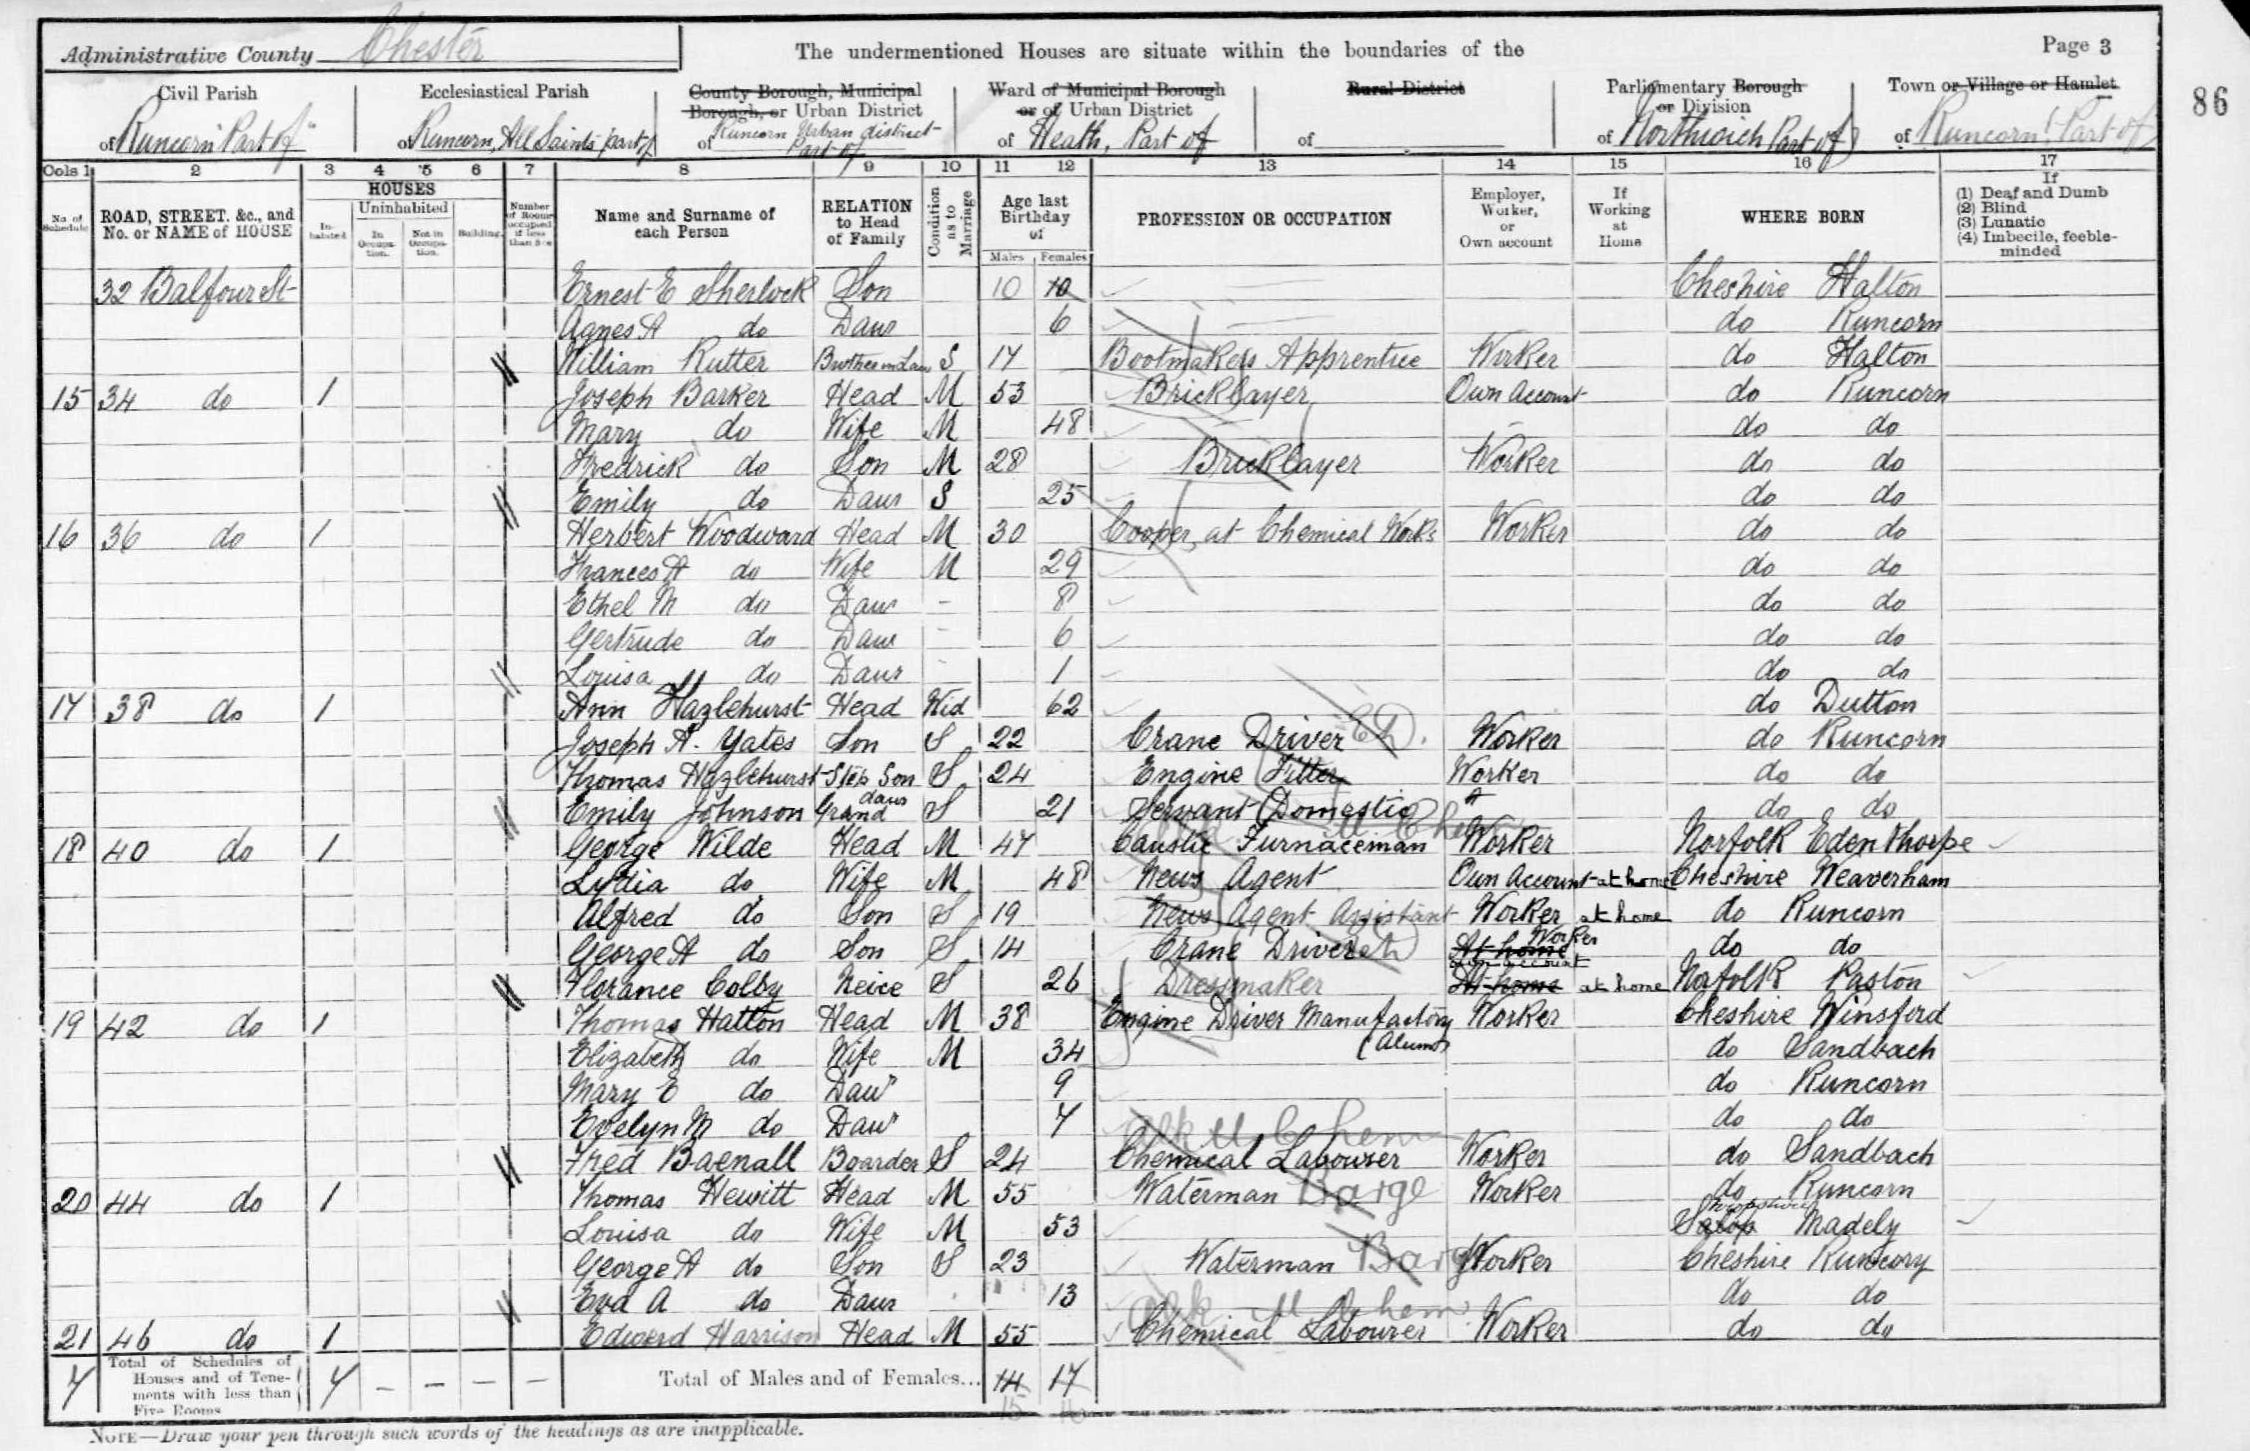 Administrative County Chester
The undermentioned Houses are situate within the boundaries of the
Page 3
86
Civil Parish of Runcorn "Part of"
Ecclesiastical Parish of Runcorn, All Saints part of
County Borough, Municipal Borough, or Urban District of Runcorn Urban district Part of
Ward of Municipal Borough or of Urban District of Heath, Part of
Rural District of
Parliamentary Borough or Division of Northwich Part of
Town or Village or Hamlet of Runcorn Part of
Cols 1 2 3 4 5 6 7 8 9 10 11 12 13 14 15 16 17
No. of Schedule
ROAD, STREET, &c., and No. or NAME of HOUSE
HOUSES
Inhabited
Uninhabited
In Occupation.
Not in Occupation.
Building.
Number of Rooms occupied if less than five
Name and Surname of each Person
RELATION to Head of Family
Condition as to Marriage
Age last Birthday of
Males Females
PROFESSION OR OCCUPATION
Employer, Worker, or Own account
If Working at Home
WHERE BORN
If (1) Deaf and Dumb (2) Blind (3) Lunatic (4) Imbecile, feeble-minded
32 Balfour St Ernest E Sherlock Son 10 10 Cheshire Halton
Agnes A do Daur 6 do Runcorn
William Rutter Brother in Law S 17 Bootmakers Apprentice Worker do Halton
15 34 do 1 Joseph Barker Head M 53 Bricklayer Own Account do Runcorn
Mary do Wife M 48 do do
Fredrick do Son M 28 Bricklayer Worker do do
Emily do Daur S 25 do do
16 36 do 1 Herbert Woodward Head M 30 Cooper, at Chemical Works Worker do do
Frances A do Wife M 29 do do
Ethel M do Daur - 8 do do
Gertrude do Daur - 6 do do
Louisa do Daur - 1 do do
17 38 do 1 Ann Hazlehurst Head Wid 62 do Dutton
Joseph A. Yates Son S 22 Crane Driver Worker do Runcorn
Thomas Hazlehurst Step Son S 24 Engine Fitter Worker do do
Emily Johnson Grand daur S 21 Servant (Domestic) do do
18 40 do 1 George Wilde Head M 47 Caustic Furnaceman Worker Norfolk Edenthorpe
Lydia do Wife M 48 News Agent Own Account at home Cheshire Weaverham
Alfred do Son S 19 News Agent Assistant Worker at home do Runcorn
George A do Son S 14 Crane Driver At home Worker do do
Florance Colby Neice S 26 Dressmaker At home own account at home Norfolk Paston
19 42 do 1 Thomas Hatton Head M 38 Engine Driver Manufactory (Alum) Worker Cheshire Winsford
Elizabeth do Wife M 34 do Sandbach
Mary E do Daur 9 do Runcorn
Evelyn M do Daur 7 do do
Alk M Chem
Fred Baenall Boarder S 24 Chemical Labourer Worker do Sandbach
20 44 do 1 Thomas Hewitt Head M 55 Waterman Barge Worker do Runcorn
Louisa do Wife M 53 Salop Shropshire Madely
George A do Son S 23 Waterman Barge Worker Cheshire Runcorn
Eva A do Daur 13 do do
Alk M Chem
21 46 do 1 Edward Harrison Head M 55 Chemical Labourer Worker do do
7 Total of Schedules of Houses and of Tenements with less than Five Rooms 7 - - - - Total of Males and of Females... 14 17
15 16
NOTE—Draw your pen through such words of the headings as are inapplicable.